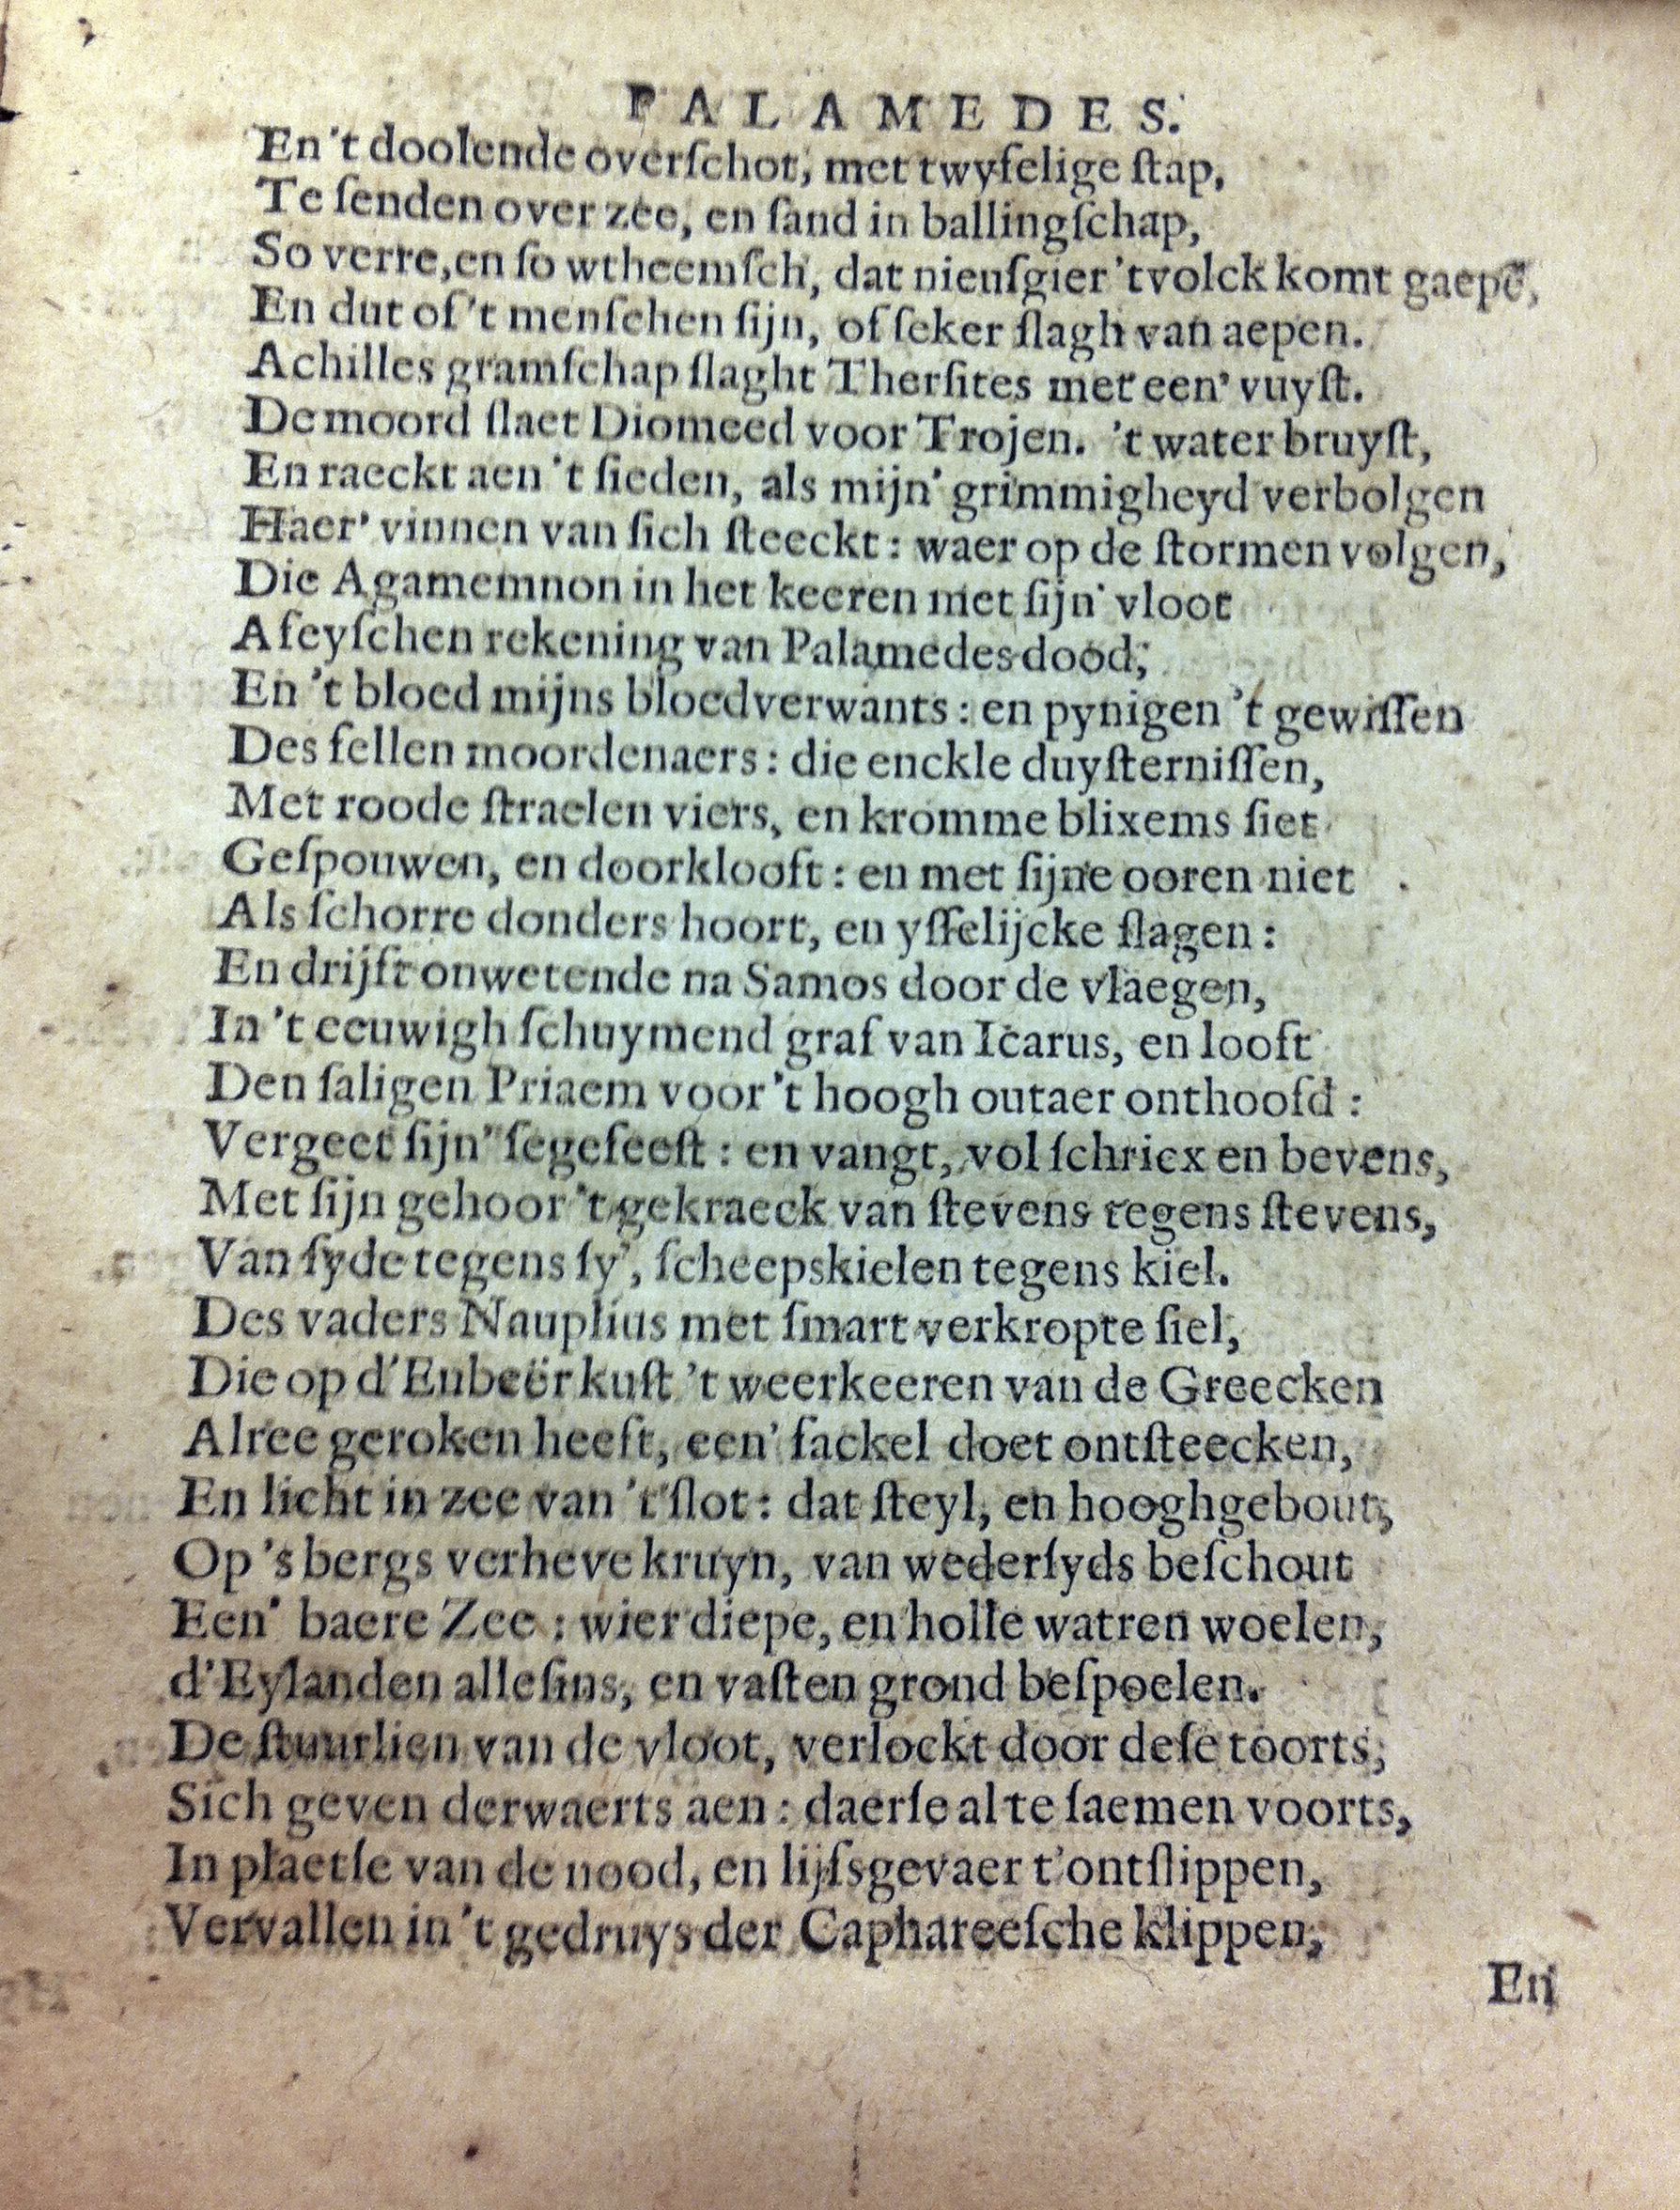 PALAMEDES.
En 't doolende overſchot, met twyfelige ſtap,
Te ſenden over zee, en ſand in ballingſchap,
So verre, en ſo wtheemſch, dat nieuſgier 't volck komt gaepẽ,
En dut of 't menſchen ſijn, of ſeker ſlagh van aepen.
Achilles gramſchap ſlaght Therſites met een' vuyſt.
De moord ſlaet Diomeed voor Trojen. 't water bruyſt,
En raeckt aen 't ſieden, als mijn' grimmigheyd verbolgen
Haer' vinnen van ſich ſteeckt: waer op de ſtormen volgen,
Die Agamemnon in het keeren met ſijn' vloot
Afeyſchen rekening van Palamedes dood;
En 't bloed mijns bloedverwants: en pynigen 't gewiſſen
Des fellen moordenaers: die enckle duyſterniſſen,
Met roode ſtraelen viers, en kromme blixems ſiet
Geſpouwen, en doorklooft: en met ſijne ooren niet
Als ſchorre donders hoort, en yſſelijcke ſlagen:
En drijft onwetende na Samos door de vlaegen,
In 't eeuwigh ſchuymend graf van Icarus, en looft
Den ſaligen Priaem voor 't hoogh outaer onthoofd:
Vergeet ſijn' ſegefeeſt: en vangt, vol ſchricx en bevens,
Met ſijn gehoor 't gekraeck van ſtevens tegens ſtevens,
Van ſyde tegens ſy', ſcheepskielen tegens kiel.
Des vaders Nauplius met ſmart verkropte ſiel,
Die op d'Eubeër kuſt 't weerkeeren van de Greecken
Alree geroken heeft, een' fackel doet ontſteecken,
En licht in zee van 't ſlot: dat ſteyl, en hooghgebout,
Op 's bergs verheve kruyn, van wederſyds beſchout
Een' baere Zee: wier diepe, en holle watren woelen,
d'Eylanden alleſins, en vaſten grond beſpoelen.
De ſtuurlien van de vloot, verlockt door deſe toorts,
Sich geven derwaerts aen: daerſe al te ſaemen voorts,
In plaetſe van de nood, en lijfsgevaer t'ontſlippen,
Vervallen in 't gedruys der Caphareeſche klippen,
En